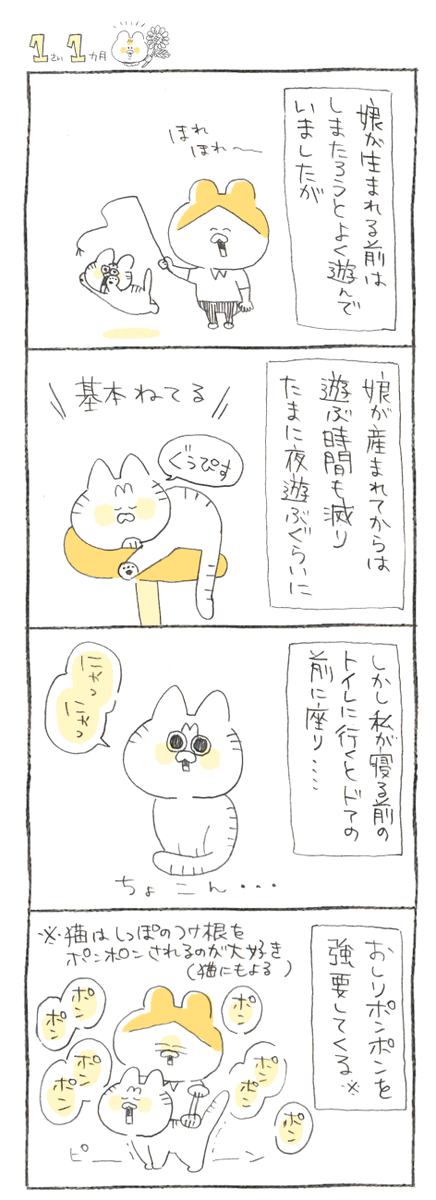 1さい1カ月
娘が生まれる前は
しまたろうとよく遊んで
いましたが
ほれ
ほれ〜
娘が産まれてからは
遊ぶ時間も減り
たまに夜遊ぶぐらいに
基本ねてる
ぐうぴす
しかし私が寝る前の
トイレに行くとドアの
前に座り……
にゃっ
にゃっ
ちょこん・・・
おしりポンポンを
強要してくる※
※猫はしっぽのつけ根を
ポンポンされるのが大好き
(猫にもよる)
ポン
ポン
ポン
ポン
ポン
ポン
ポン
ポン
ピーーン